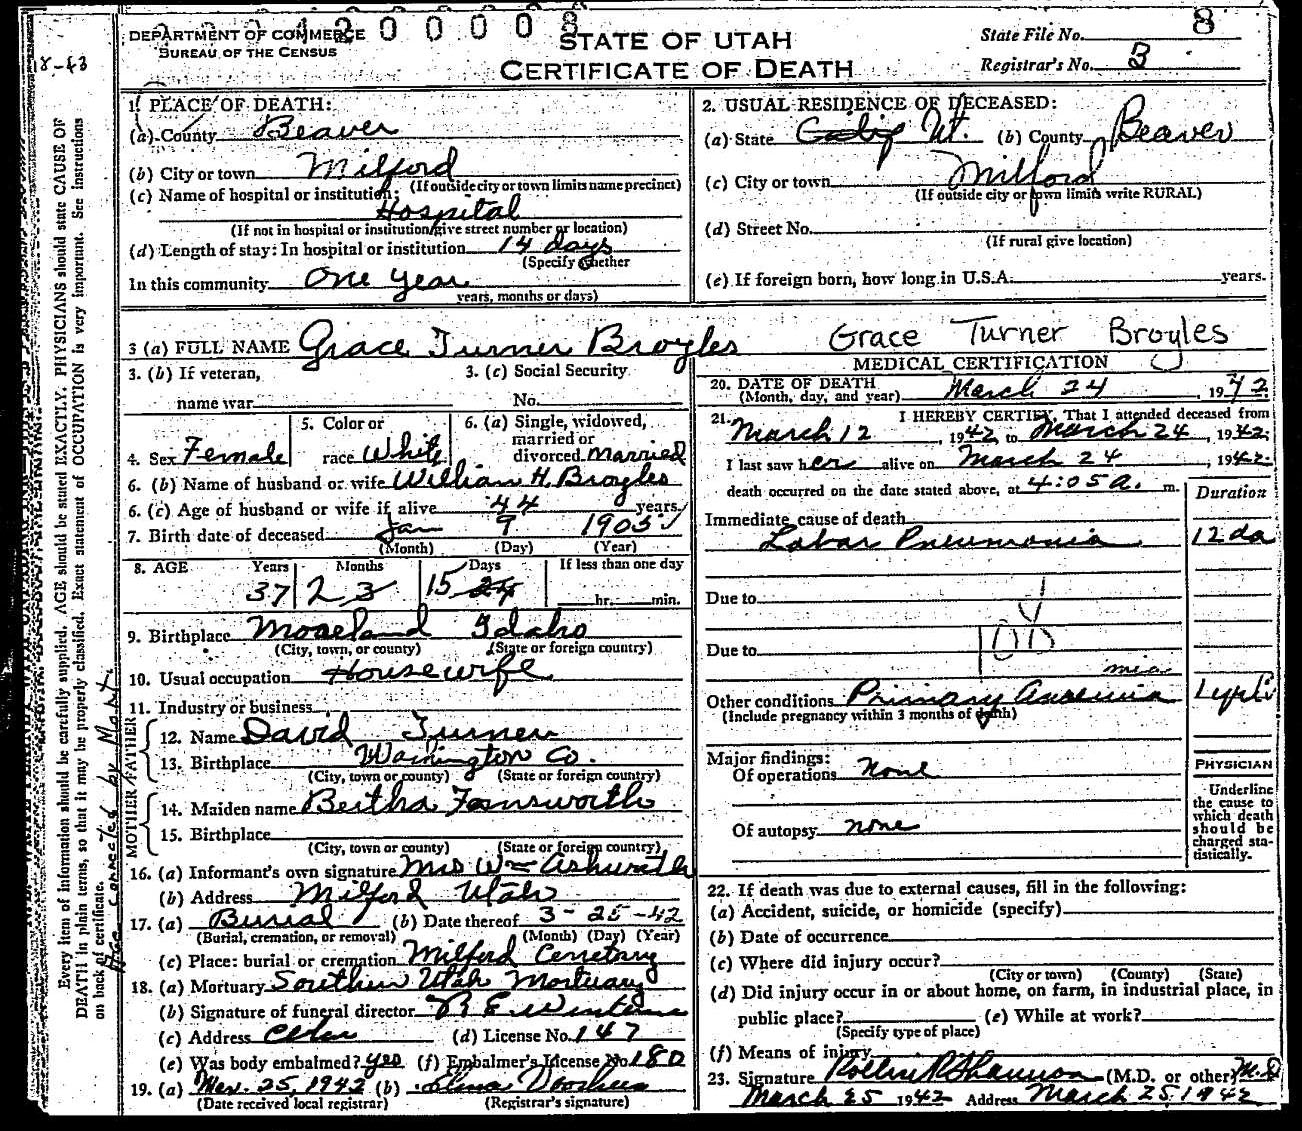 DEPARTMENT OF COMMERCE
BUREAU OF THE CENSUS
STATE OF UTAH
CERTIFICATE OF DEATH
State File No. 8
Registrar's No. 3
18-43
Every item of information should be carefully supplied. AGE should be stated EXACTLY. PHYSICIANS should state CAUSE OF
DEATH in plain terms, so that it may be properly classified. Exact statement of OCCUPATION is very important. See instructions
on back of certificate.
1. PLACE OF DEATH:
(a) County Beaver
(b) City or town Milford
(If outside city or town limits name precinct)
(c) Name of hospital or institution:
Hospital
(If not in hospital or institution give street number or location)
(d) Length of stay: In hospital or institution 14 days
(Specify whether
In this community One year
years, months or days)
2. USUAL RESIDENCE OF DECEASED:
(a) State Calif Ut. (b) County Beaver
(c) City or town Milford
(If outside city or town limits write RURAL)
(d) Street No.
(If rural give location)
(e) If foreign born, how long in U.S.A. years.
3 (a) FULL NAME Grace Turner Broyles
Grace Turner Broyles
3. (b) If veteran, name war
3. (c) Social Security No.
4. Sex Female
5. Color or race White
6. (a) Single, widowed, married or divorced married
6. (b) Name of husband or wife William H. Broyles
6. (c) Age of husband or wife if alive 44 years.
7. Birth date of deceased Jan 9 1905
(Month) (Day) (Year)
8. AGE Years Months Days If less than one day
37 2 3 15 24 hr. min.
9. Birthplace Moreland Idaho
(City, town, or county) (State or foreign country)
10. Usual occupation Housewife
11. Industry or business
FATHER
12. Name David Turner
13. Birthplace Washington Co.
(City, town or county) (State or foreign country)
MOTHER
14. Maiden name Bertha Farnsworth
15. Birthplace
(City, town or county) (State or foreign country)
16. (a) Informant's own signature Mrs Wm Ashworth
(b) Address Milford Utah
17. (a) Burial (b) Date thereof 3-25-42
(Burial, cremation, or removal) (Month) (Day) (Year)
(c) Place: burial or cremation Milford Cemetary
18. (a) Mortuary Southern Utah Mortuary
(b) Signature of funeral director
(c) Address Cedar (d) License No. 147
(e) Was body embalmed? yes (f) Embalmer's License No. 180
19. (a) Mar. 25, 1942 (b)
(Date received local registrar) (Registrar's signature)
MEDICAL CERTIFICATION
20. DATE OF DEATH March 24, 1942
(Month, day, and year)
21. I HEREBY CERTIFY, That I attended deceased from
March 12, 1942, to March 24, 1942;
I last saw her alive on March 24, 1942;
death occurred on the date stated above, at 4:05 a. m.
Duration
Immediate cause of death
Lobar Pneumonia 12 da
Due to
Due to
Other conditions Primary Anaemia
(Include pregnancy within 3 months of death)
Major findings:
Of operations none
Of autopsy none
PHYSICIAN
Underline
the cause to
which death
should be
charged sta-
tistically.
22. If death was due to external causes, fill in the following:
(a) Accident, suicide, or homicide (specify)
(b) Date of occurrence
(c) Where did injury occur?
(City or town) (County) (State)
(d) Did injury occur in or about home, on farm, in industrial place, in
public place? (e) While at work?
(Specify type of place)
(f) Means of injury
23. Signature (M.D. or other) M.D
March 25 1942 Address March 25, 1942